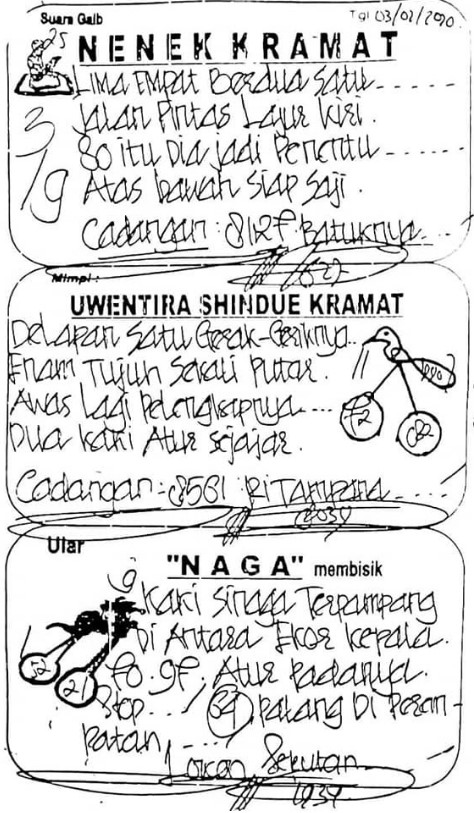 Suara Gaib
Tgl 03/02/2020
NENEK KRAMAT
Lima Empat Berdua Satu......
Jalan Pintas Lajur Kiri.
80 itu Dia jadi Penentu......
Atas bawah Siap Saji.
Cadangan : 8127. Batuknya...
Mimpi :
UWENTIRA SHINDUE KRAMAT
Delapan Satu Gerak-Geriknya..
Enam Tujuh Sekali Putar.
Awas Lagi Pelengkapnya....
Dua kaki Atur sejajar.
72
82
Cadangan - 8561
Ular
"NAGA" membisik
Kaki Singa Terpampang
Di Antara Ekor kepala.
52
21
Atur Padanya.
Stop... 64, palang Di Peram-
patan